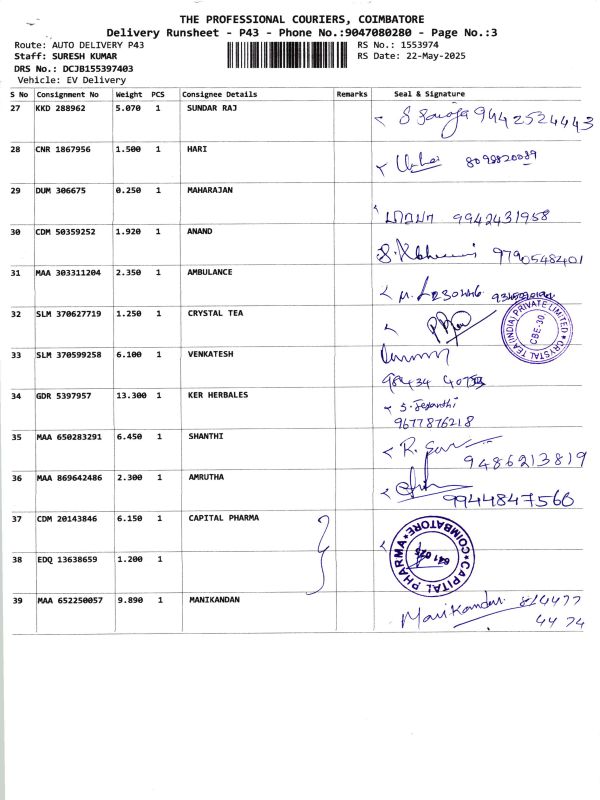 THE PROFESSIONAL COURIERS, COIMBATORE
Delivery Runsheet - P43 - Phone No.:9047080280 - Page No.:3
Route: AUTO DELIVERY P43 RS No.: 1553974
Staff: SURESH KUMAR RS Date: 22-May-2025
DRS No.: DCJB155397403
Vehicle: EV Delivery
S No Consignment No Weight PCS Consignee Details Remarks Seal & Signature
27 KKD 288962 5.070 1 SUNDAR RAJ 9442524443
28 CNR 1867956 1.500 1 HARI
29 DUM 306675 0.250 1 MAHARAJAN 9942431958
30 CDM 50359252 1.920 1 ANAND 9790548401
31 MAA 303311204 2.350 1 AMBULANCE
32 SLM 370627719 1.250 1 CRYSTAL TEA
CRYSTAL TEA (INDIA) PRIVATE LIMITED
CBE-30
33 SLM 370599258 6.100 1 VENKATESH
34 GDR 5397957 13.300 1 KER HERBALES S. Jeyanthi
9677876218
35 MAA 650283291 6.450 1 SHANTHI
9486213819
36 MAA 869642486 2.300 1 AMRUTHA
9944847560
37 CDM 20143846 6.150 1 CAPITAL PHARMA
CAPITAL PHARMA COIMBATORE
38 EDQ 13638659 1.200 1
39 MAA 652250057 9.890 1 MANIKANDAN Manikandan
4474